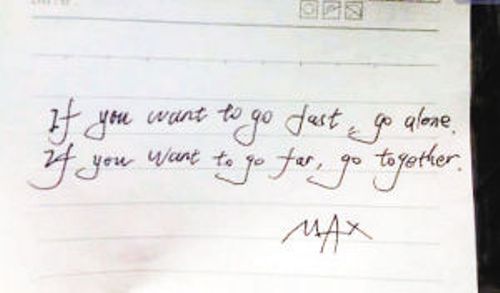 If you want to go fast, go alone.
If you want to go far, go together.
MAX